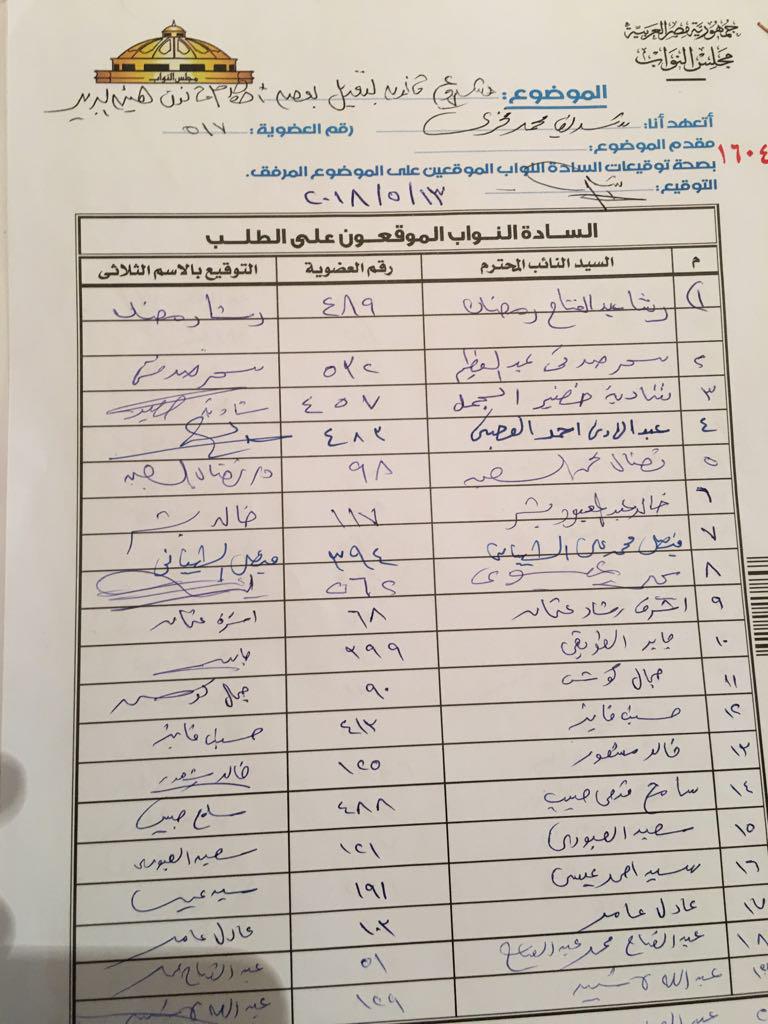 جمهورية مصر العربية
مجلس النواب
مجلس النواب
الموضوع: مشروع قانون بتعديل بعض أحكام قانون هيئة البريد
أتعهد أنا: شريف محمد فخرى رقم العضوية: ٥١٧
مقدم الموضوع:
١٦٠٤
بصحة توقيعات السادة النواب الموقعين على الموضوع المرفق.
التوقيع:
٢٠١٨/٥/١٣
السادة النواب الموقعون على الطلب
م السيد النائب المحترم رقم العضوية التوقيع بالاسم الثلاثى
١ رشا عبد الفتاح رمضان ٤٨٩ رشا رمضان
٢ سحر صدقى عبد العظيم ٥٣٢ سحر صدقى
٣ شادية خضير الجمل ٤٥٧ شادية خضير
٤ احمد ٤٨٣
٥ نضال السعيد ٩٨ د/ نضال السعيد
٦ خالد عبد المعبود بشر ١١٧ خالد بشر
٧ فيصل محمد على الشيبانى ٣٩٤ فيصل الشيبانى
٨ ٥٦٢
٩ اشرف رشاد عثمان ٦٨ اشرف عثمان
١٠ جابر الطويقى ٢٩٩ جابر
١١ جمال كوش ٩٠ جمال كوش
١٢ حسين فايز ٤١٣ حسين فايز
١٣ خالد مسعود ١٢٥ خالد مسعود
١٤ سامح فتحى حبيب ٤٨٨ سامح حبيب
١٥ سعيد العبودى ١٢١ سعيد العبودى
١٦ سيد احمد عيسى ١٩١ سيد عيسى
١٧ عادل عامر ١٠٢ عادل عامر
١٨ عبد الفتاح محمد عبد الفتاح ٥١ عبد الفتاح محمد
١٩ عبد الله لاشين ١٢٩ عبد الله لاشين